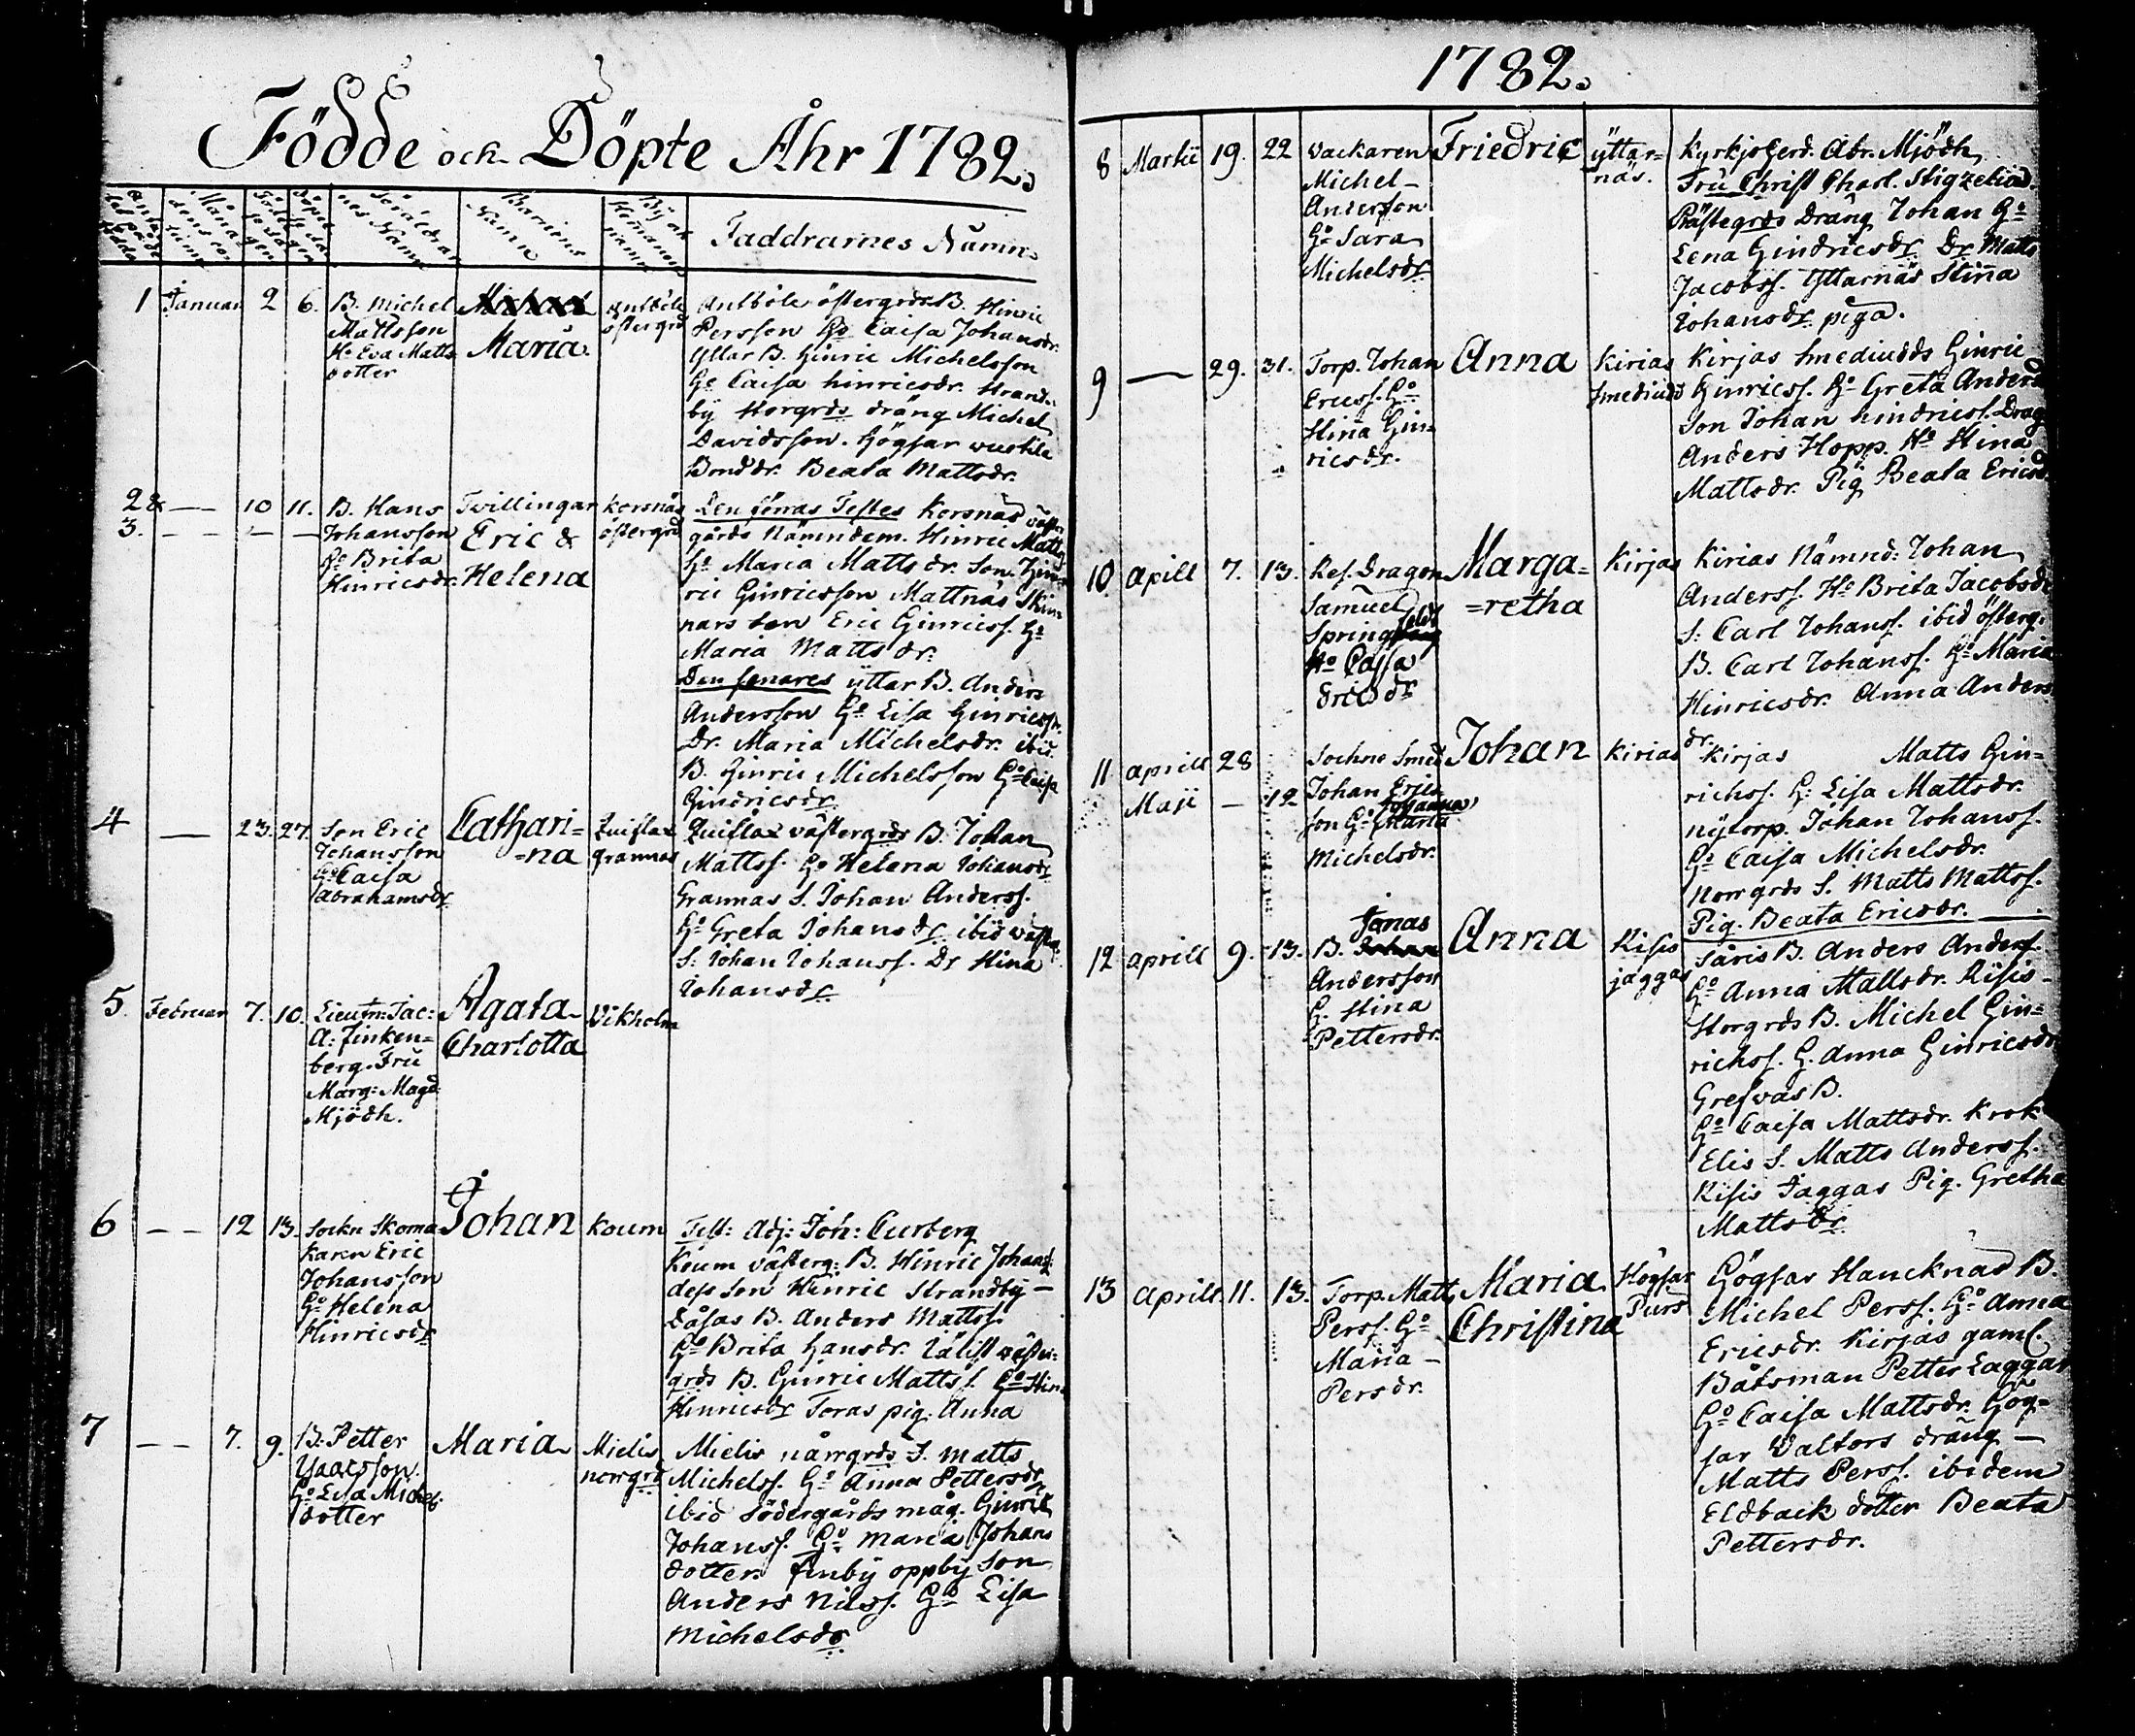 Födde och Döpte Åhr 1782.
Faddrarnes Namn
1 Januar 2 6. B. Michel Mattsson Ho Eva Matts dotter
Maria
Antböle östergrd
Antböle östergrds B. Hinric
Persson Ho Caisa Johansdr.
Yttar B. Hinric Michelsson
Ho Caisa hinricsdr. Strand-
by Storgrds dräng Michel
Davidsson. Högsar
Bonddr. Beata Mattsdr.
2 & 3. — 10 11. B. Hans Johansson Ho Brita Hinricsdr.
Tvillingar Eric & Helena
Korsnäs östergrd
Den förras Testes Korsnäs väster
gårds Nämndem. Hinric Matts
Ho Maria Matts dr. Son Hin-
ric Hinricsson Mattnäs Skin
nars son Eric Hinricss. Ho
Maria Matts dr.
Den senares yttar B. Anders
Andersson Ho Lisa Hinricsdr.
Dr. Maria Michelsdr. ibid.
B. Hinric Michelsson Ho Caisa
Hindricsdr
4 — 23. 27. Son Eric Johansson Ho Caisa Abrahamsdr
Cathari=
=na
Quiflax grannas
Quiflax västergrds B. Johan
Mattss. Ho Helena Johansdr
Grannas S. Johan Anderss.
Ho Greta Johansdr ibid
S: Johan Johanss. Dr Stina
Johansdr
5. Februar 7. 10. Lieutn: Jac: A: Finken=
berg. Fru
Marg: Magd:
Mjödh.
Agata
Charlotta
Vikholm
6 — 12 13. Sockn Skoma
karen Eric
Johansson
Ho Helena
Hinricsdr
Johan
Koum
Test: Adj: Joh: Curberg
Koum västerg: B. Hinric Johanss:
dess son Hinric Strandby —
Låsas B. Anders Mattss.
Ho Brita Hansdr. Lälist väster-
grds B. Hinric Mattss. Ho Stin
Hinricsdr Toras pig. Anna
7 — 7. 9. B. Petter
Ysaacsson.
Ho Lisa Michels
dotter
Maria
Mielis
norrgrd
Mielis norrgrds S. Matts
Michelss. Ho Anna Pettersdr
ibid Södergårds måg. Hinric
Johanss. Ho Maria Johans
dotter. Finby oppby Son
Anders Nilss. Ho Lisa
Michelsdr
1782.
8 Martii 19. 22 Vackaren
Michel
Andersson
Ho Sara
Michelsdr
Friedric
yttar=
näs.
Kyrkjoherd. Abr. Mjödh
Fru Christ Charl. Stigzelia
Prästegrds Dräng Johan Ho
Lena Hindricsdr Dr Matts
Jacobss. Yttarnäs Stina
Johansdr piga.
9 — 29. 31. Torp. Johan
Ericss. Ho
Stina Hin-
ricsdr.
Anna
Kirias
Smediudd
Kirjas Smediudds Hinric
Hinricss. Ho Greta Anders
Son Johan hindricss. Drag
Anders Hopp. Ho Stina
Mattsdr. Pig Beata Ericsd
10. Aprill 7. 13. Ref. Dragon
Samuel
Springfeldt
Ho Caisa
Ericsdr
Marga=
=retha
Kirjas
Kirias Nämnd: Johan
Anderss. Ho Brita Jacobsdr
S: Carl Johanss. ibid österg:
B. Carl Johanss. Ho Maria
Hinricsdr. Anna Anders
dr
11 aprill 28
Maji — 12
Sochne Smed
Johan Erics
son Ho Johanna
Michelsdr.
Johan
Kirias
Kirjas Matts Hin=
richss. H: Lisa Mattsdr.
nytorp. Johan Johanss.
Ho Caisa Michelsdr.
Norrgrds S. Matts Mattss.
Pig. Beata Ericsdr.
12 aprill 9. 13. B. Jonas
Andersson
H. Stina
Pettersdr.
Anna
Risis
jaggas
Säris B. Anders Anderss.
Ho Anna Mattsdr. Risis
Storgrds B. Michel Hin=
richss. H. Anna Hinricsdr
Gresvas B.
Ho Caisa Mattsdr. Krok
Elis S. Matts Anderss.
Risis Jaggas Pig. Gretha
Mattsdr
13 aprill. 11. 13. Torp. Matts
Perss. Ho
Maria
Persdr.
Maria
Christina
Högsar
Purs
Högsar Haucknäs B.
Michel Perss. Ho Anna
Ericsdr. Kirjas gaml.
Båtsman Petter Laggar
Ho Caisa Mattsdr. Hög=
sar Valtors dräng —
Matts Perss. ibidem
Eldback dotter Beata
Pettersdr.